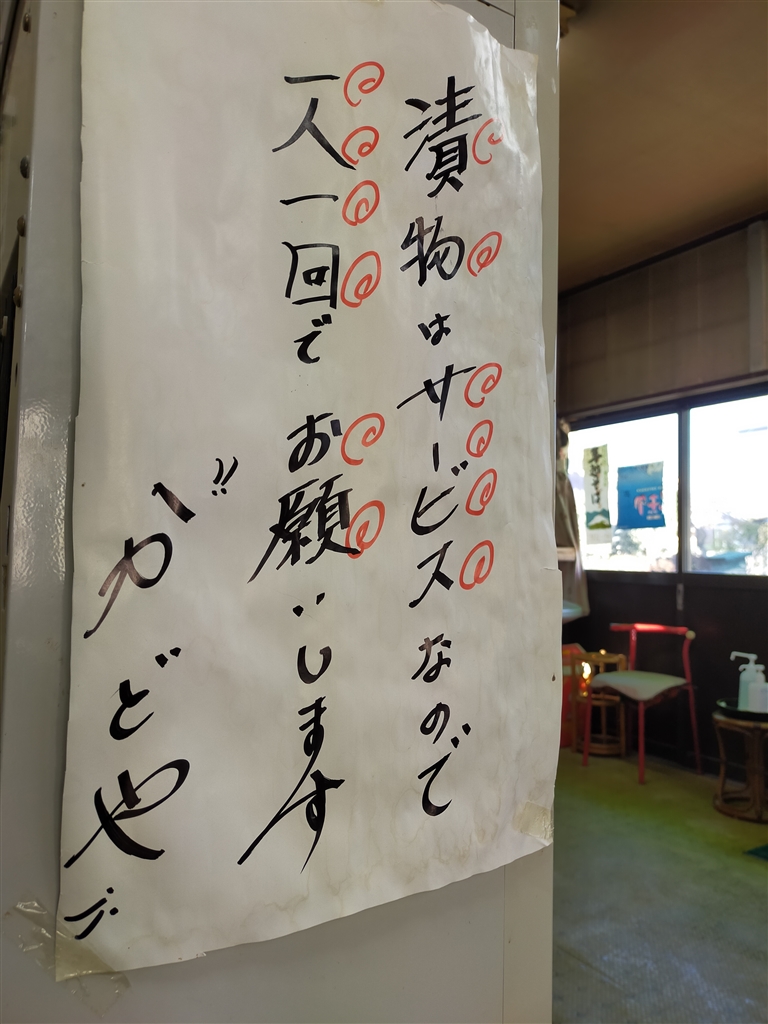 漬物はサービスなので
一人一回でお願いします
かどや